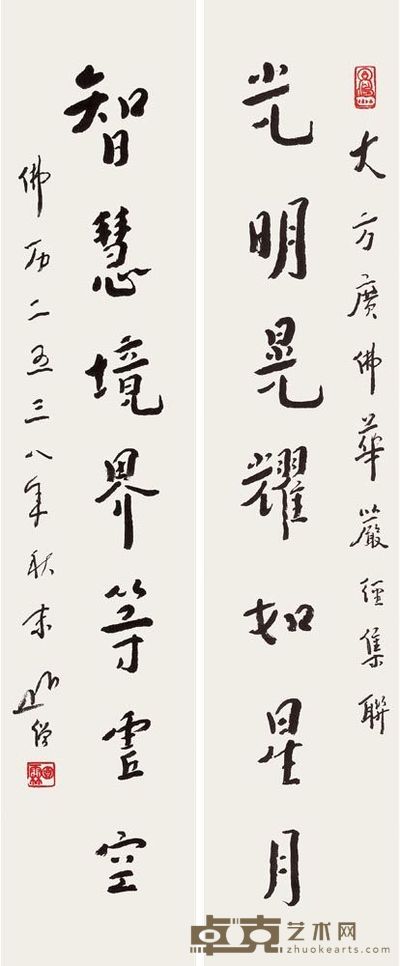 大方廣佛華嚴經集聯
光明晃耀如星月
智慧境界等虛空
佛历二五三八年秋末僧
卓克艺术网
zhuokearts.com